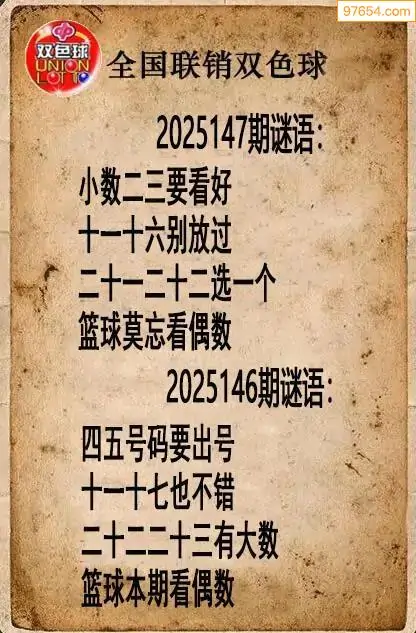 97654.com
双色球
UNION
LOTTO
全国联销双色球
2025147期谜语：
小数二三要看好
十一十六别放过
二十一二十二选一个
篮球莫忘看偶数
2025146期谜语：
四五号码要出号
十一十七也不错
二十二二十三有大数
篮球本期看偶数